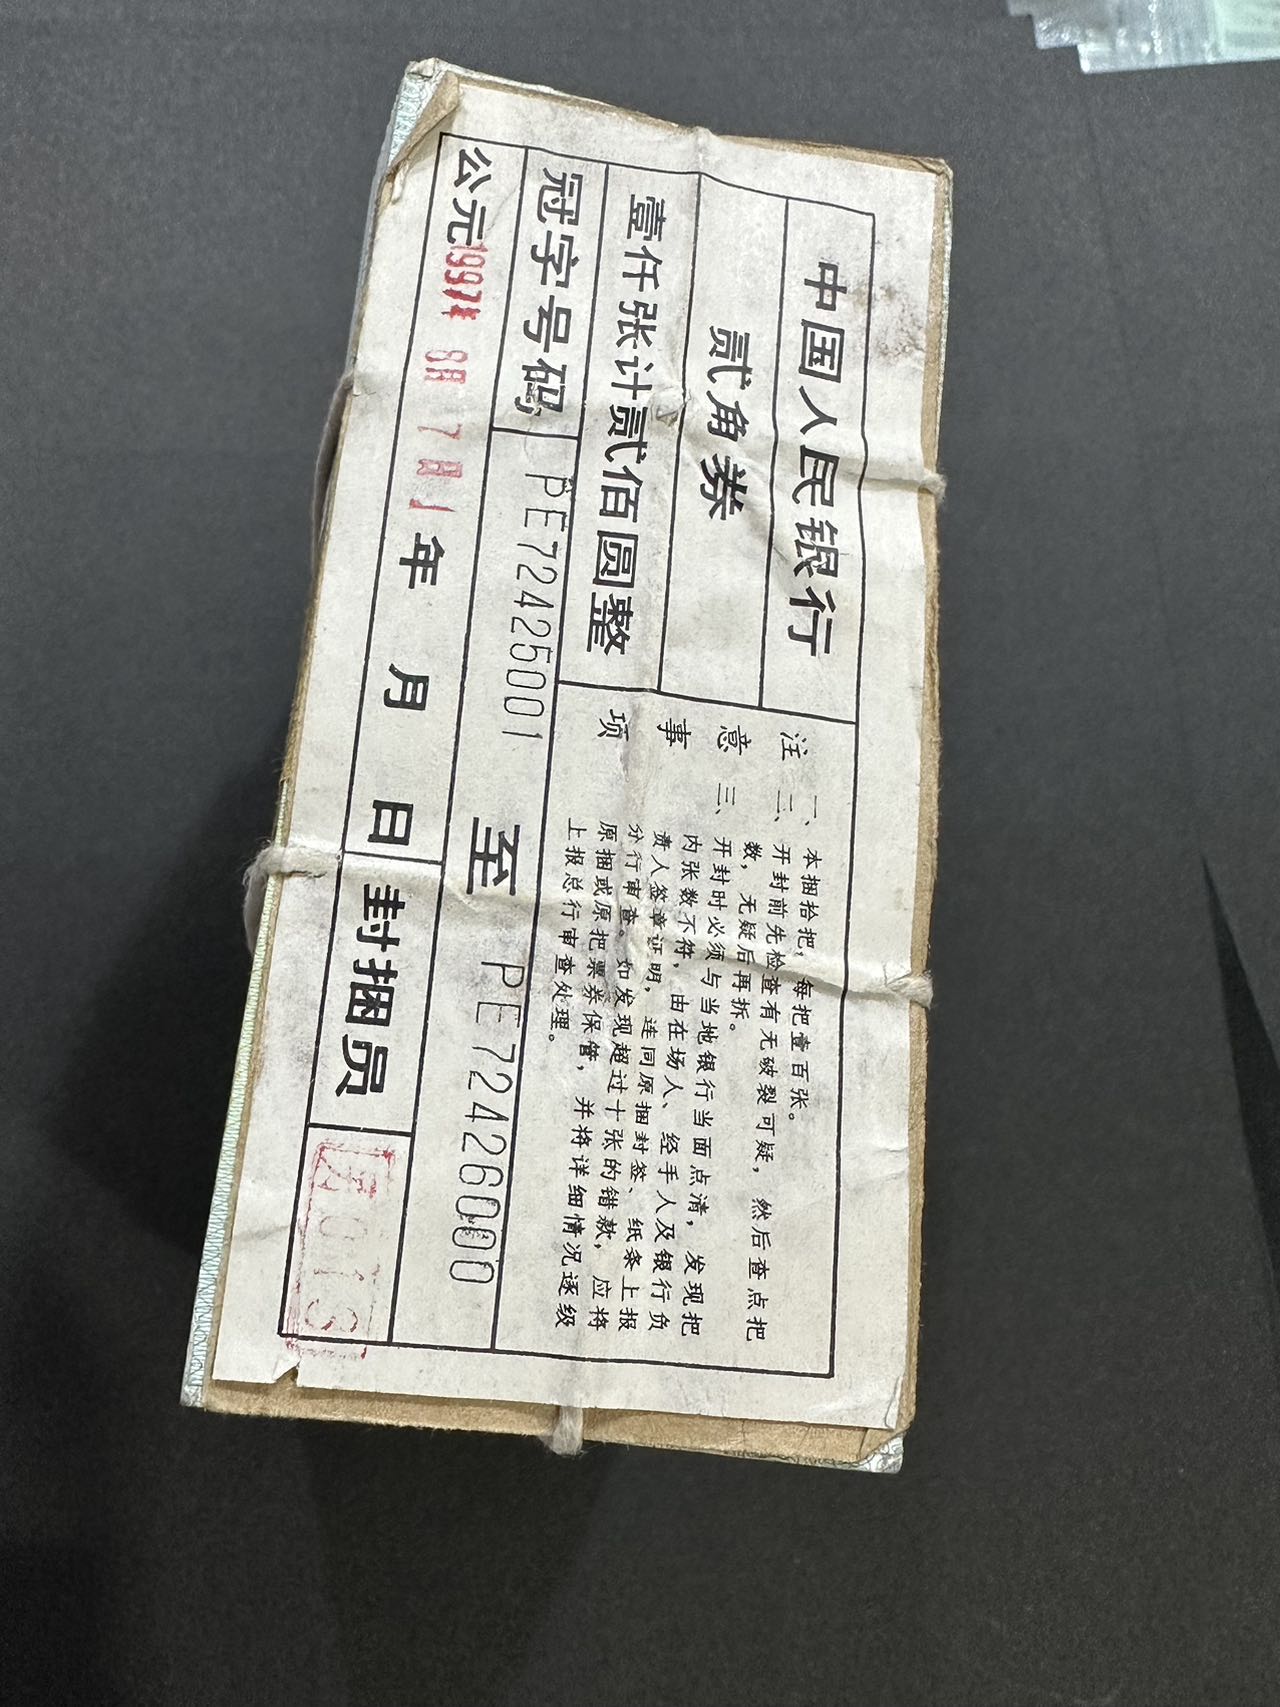 中国人民银行
贰角券
壹仟张计贰佰圆整
注意事项
一、本捆拾把，每把壹百张。
二、开封前先检查有无破裂可疑，然后查点把
数，无疑后再拆。
三、开封时必须与当地银行当面点清，发现把
内张数不符，由在场人、经手人及银行负
责人签章证明，连同原捆封签、纸条上报
分行审查。如发现超过十张的错款，应将
原捆或原把票券保管，并将详细情况逐级
上报总行审查处理。
冠字号码 PE72425001 至 PE72426000
公元 1997 年 月 日 封捆员